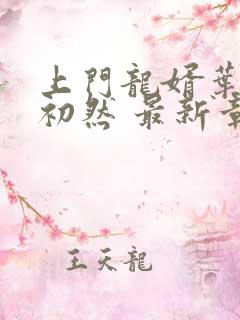 上門龍婿葉
初然 最新章
王天龍